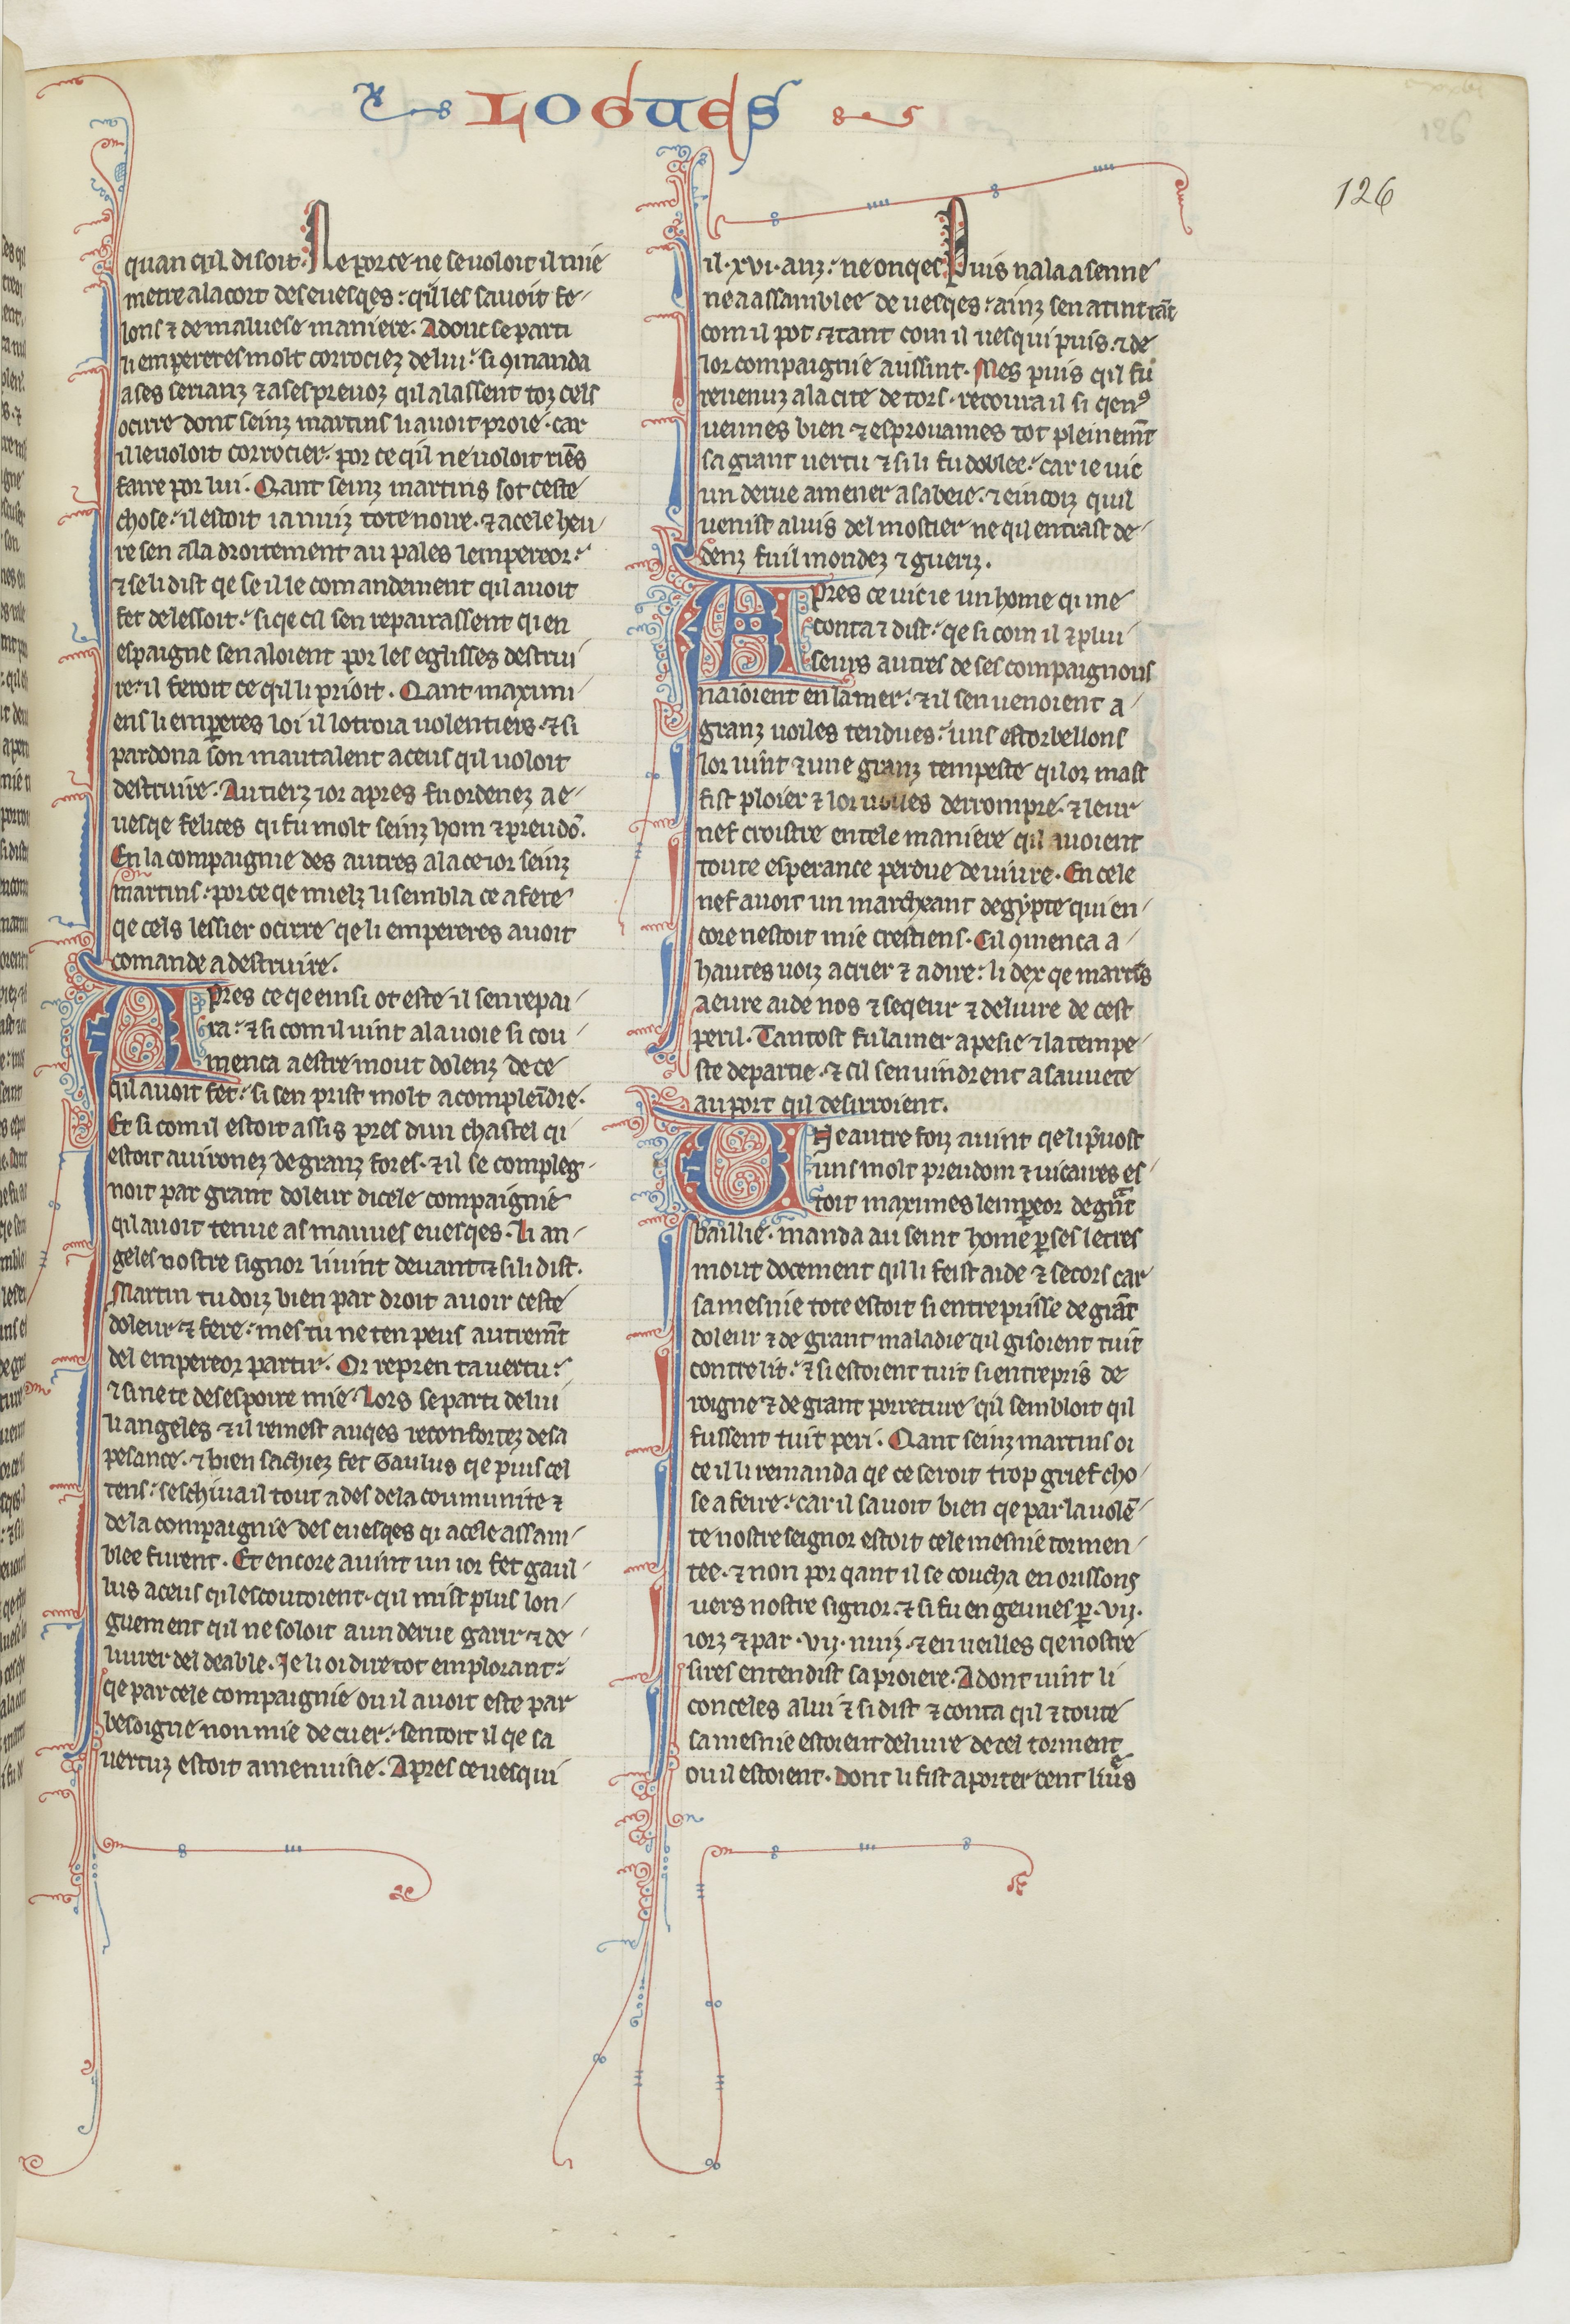 LOGUES
126
126
quan qil disoit. Ne por ce ne se voloit il mie
metre a la cort des evesqes: qil les savoit fe-
lons ⁊ de malvese maniere. Adonc se parti
li empereres molt corrociez de lui: si 9manda
a ses serianz ⁊ a ses prevoz qil alassent toz cels
ocirre dont seinz martins li avoit proie. car
il le voloit corrocier. por ce qil ne voloit riēs
faire por lui. Qant seinz martins sot ceste
chose: il estoit ia nuiz tote noire. ⁊ a cele heu-
re sen ala droitement au pales lempereor:
⁊ se li dist qe se il le comandement qil avoit
fet delessoit: si qe cil sen repairassent qi en
espaigne sen aloient por les eglisses destrui-
re: il feroit ce qil li prioit. Qant maximi-
ens li emperes loi il lotroia volentiers. ⁊ si
pardona son mautalent a ceus qil voloit
destruire. Au tierz ior apres fu ordenez a e-
vesqe felices qi fu molt seinz hom ⁊ preudō.
En la compaignie des autres ala ce ior seinz
martins: por ce qe mielz li sembla ce a fere
qe cels lessier ocirre qe li empereres avoit
comande a destruire.
Apres ce qe einsi ot este il sen repai-
ra: ⁊ si com il vint a la voie si cou-
menca a estre mout dolenz de ce
qil avoit fet: si sen prist molt a compleīdre.
Et si com il estoit assis pres dun chastel qi
estoit avironez de granz fores. ⁊ il se compleg-
noit par grant doleur dicele compaignie
qil avoit tenue as mauves evesqes. Li an-
geles nostre signor li vint devant ⁊ si li dist.
Martin tu doiz bien par droit avoir ceste
doleur ⁊ fere: mes tu ne ten peus autremt̄
del empereor partir. Or repren ta vertu:
⁊ si ne te desespoire mie. Lors se parti de lui
li angeles ⁊ il remest auqes reconfortez de sa
pesance. ⁊ bien sachiez fet Gaulus qe puis cel
tens: seschiva il tout ades de la coumunite ⁊
de la compaignie des evesqes qi a cele assam-
blee furent. Et encore avint un ior fet gaul-
lus a ceus qil escoutoient. qil mist plus lon-
guement qil ne soloit a un derve garir ⁊ de-
livrer del deable. Je li oi dire tot em plorant:
qe par cele compaignie ou il avoit este par
besoigne non mie de cuer: sentoit il qe sa
vertuz estoit amenuisie. Apres ce vesqui
il .xvi. anz: ne onqes puis nala a senne
ne a assamblee de vesqes: ainz sen atint tāt
com il pot. ⁊ tant com il vesqui puis. ⁊ de
lor compaignie aussint. Mes puis qil fu
revenuz a la cite de tors. recovra il si qen9
veimes bien ⁊ esprovames tot pleinemt̄
sa grant vertu ⁊ si li fu doblee: car ie vic
un derve amener a sabeie. ⁊ eincoiz quil
venist a luis del mostier ne qil entrast de-
denz fu il mondez ⁊ gueriz.
Apres ce vic ie un home qi me
conta ⁊ dist: qe si com il ⁊ plui-
seurs autres de ses compaignons
naioient en la mer: ⁊ il sen venoient a
granz voiles tendues: uns estorbellons
lor vint ⁊ une granz tempeste qi lor mast
fist ploier ⁊ lor voiles derrompre. ⁊ leur
nef croistre en tele maniere qil avoient
toute esperance perdue de vivre. En cele
nef avoit un marcheant degypte qui en-
core nestoit mie crestiens. Cil 9menca a
hautes voiz a crier ⁊ a dire: li dex qe martīs
aeure aide nos ⁊ seqeur ⁊ delivre de cest
peril. Tantost fu la mer apesie ⁊ la tempe-
ste departie. ⁊ cil sen vindrent a sauvete
au port qil desirroient.
Une autre foiz avint qe li p̄vost
uns molt preudom ⁊ vicaires es-
toit maximes lemp̄eor de gr̄at
baillie. manda au seint home p̱ ses letres
mout docement qil li feist aide ⁊ secors car
sa mesnie tote estoit si entreprisse de grāt
doleur ⁊ de grant maladie qil gisoient tuit
contre lit: ⁊ si estoient tuit si entrepris de
roigne ⁊ de grant porreture qil sembloit qil
fussent tuit peri. Qant seinz martins oi
ce il li remanda qe ce seroit trop grief cho-
se a feire: car il savoit bien qe par la volē-
te nostre seignor estoit cele mesnie tormen-
tee. ⁊ non por qant il se coucha en orissons
vers nostre signor. ⁊ si fu en geunes p̱ .vij.
iorz ⁊ par .vij. nuiz. ⁊ en veilles qe nostre
sires entendist sa proiere. Adont vint li
conceles a lui ⁊ si dist ⁊ conta qil ⁊ toute
sa mesnie estoient delivre de cel torment
ou il estoient. Dont li fist aporter cent livēs